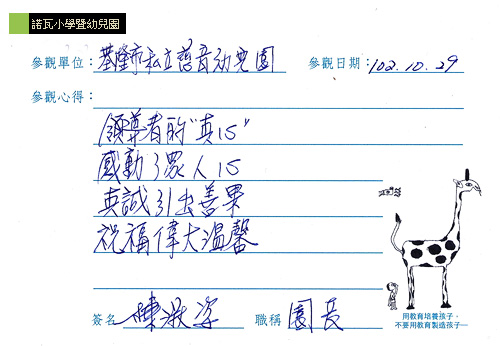 諾瓦小學暨幼兒園
參觀單位：基隆市私立慈音幼兒園 參觀日期：102.10.29
參觀心得：
領導者的"真心"
感動了眾人心
真誠引出善果
祝福偉大溫馨
簽名 陳淑姿 職稱 園長
用教育培養孩子，
不要用教育製造孩子—